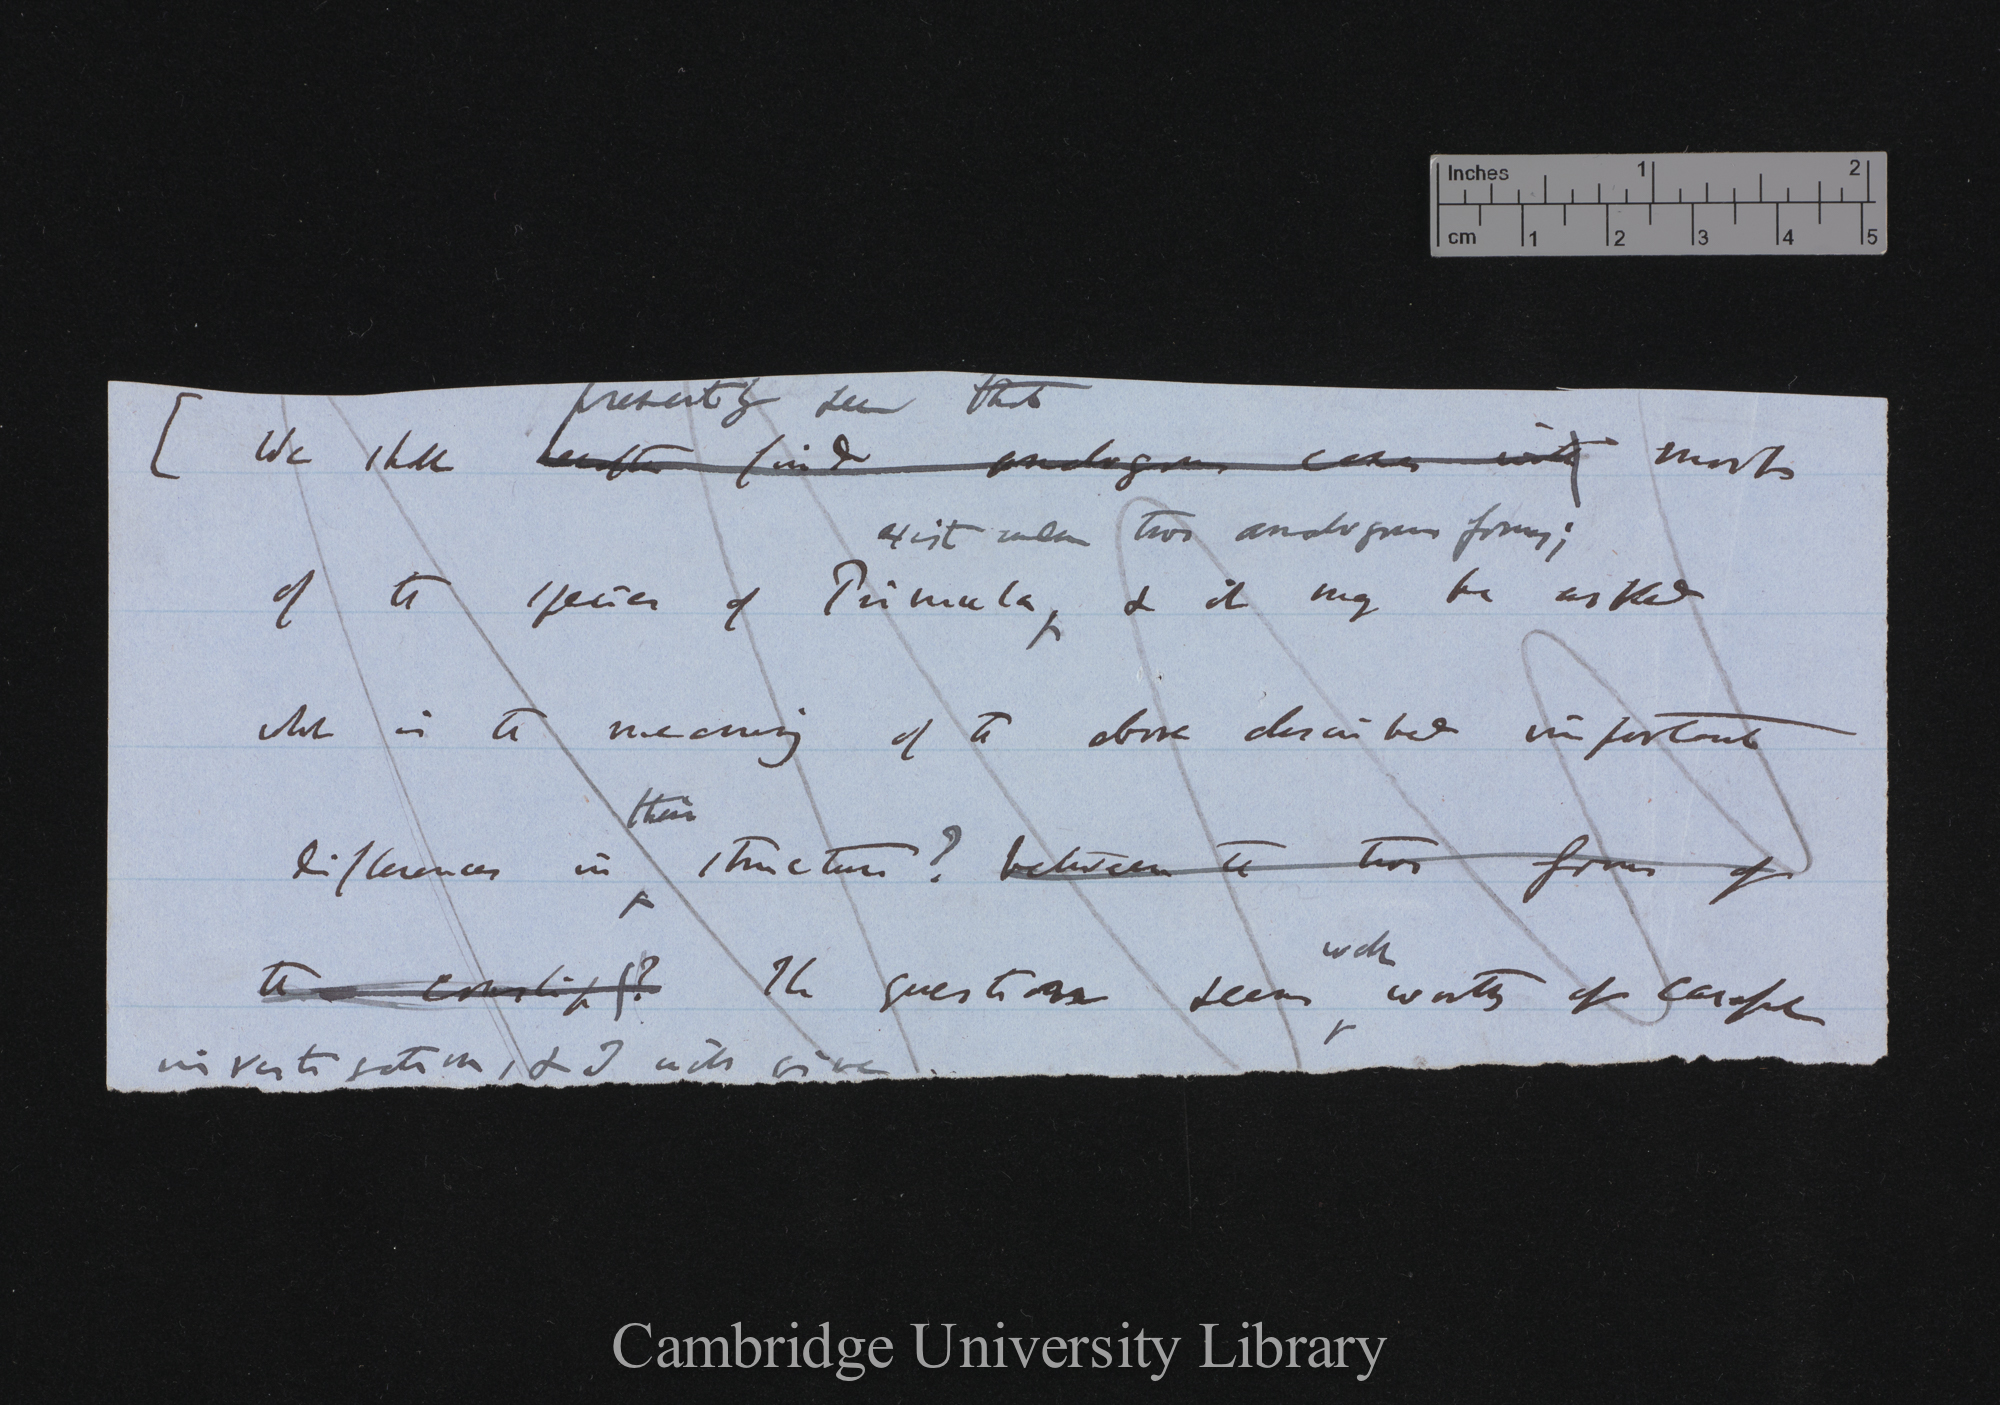 Inches 1 2
cm 1 2 3 4 5
presently see that
[ We shall hereafter find analogous cases with most
exist under two analogous forms;
of the species of Primula, & it may be asked
what is the meaning of the above described important
their
differences in structure? between the two forms of
well
the cowslip? The question seems worthy of careful
investigation, & I will give
Cambridge University Library